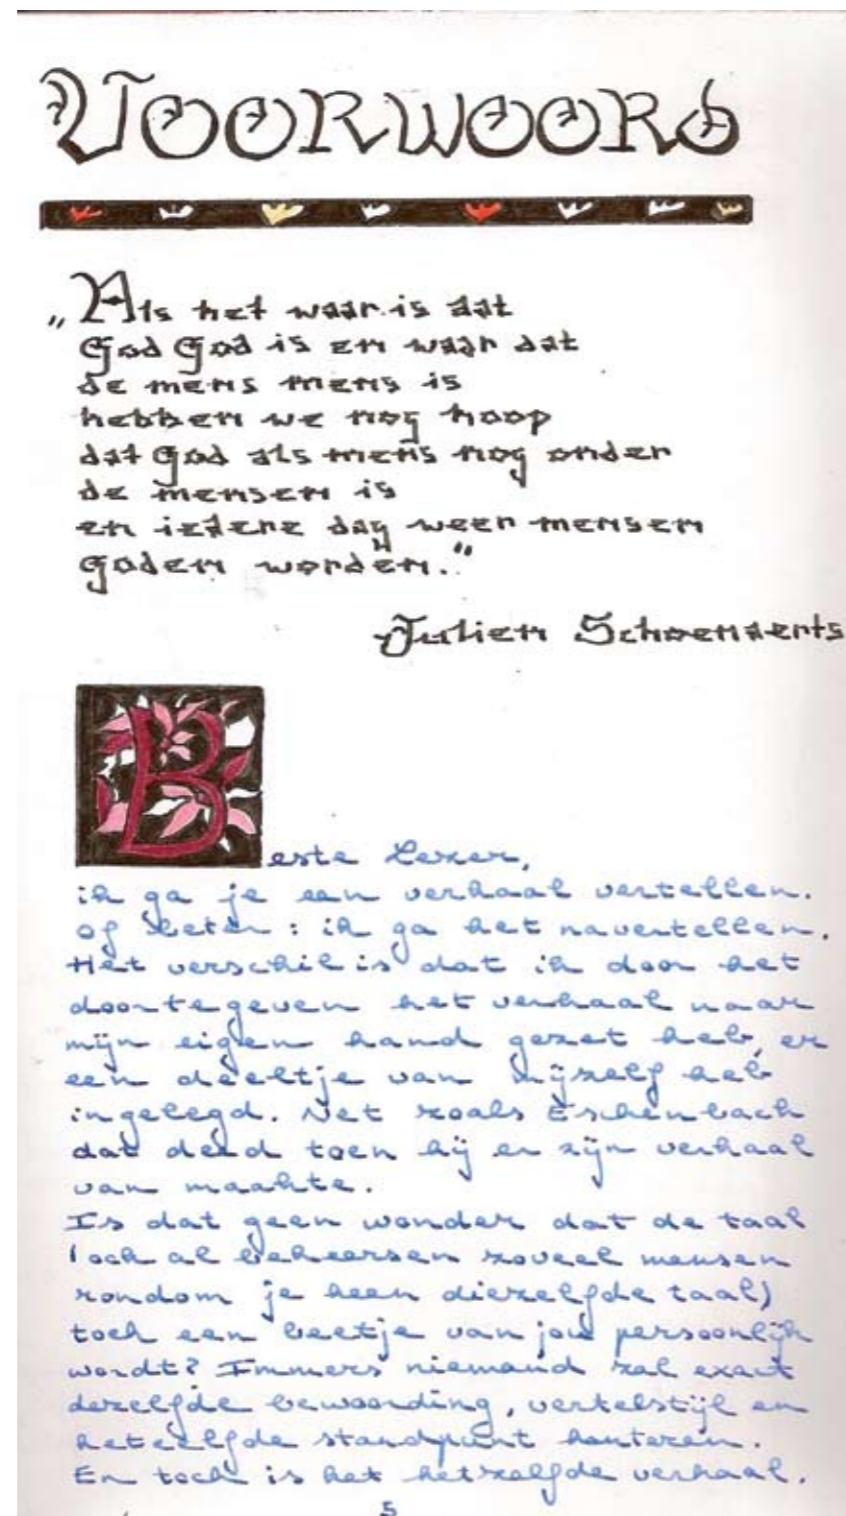 VOORWOORD
„Als het waar is dat
God God is en waar dat
de mens mens is
hebben we nog hoop
dat God als mens nog onder
de mensen is
en iedere dag weer mensen
Goden worden."
Julien Schoenaerts
Beste lezer,
ik ga je een verhaal vertellen.
of beter: ik ga het navertellen.
Het verschil is dat ik door het
door te geven het verhaal naar
mijn eigen hand gezet heb, er
een deeltje van mijzelf heb
ingelegd. Net zoals Eschenbach
dat deed toen hij er zijn verhaal
van maakte.
Is dat geen wonder dat de taal
(ook al beheersen zoveel mensen
rondom je heen diezelfde taal)
toch een beetje van jou persoonlijk
wordt? Immers niemand zal exact
dezelfde bewoording, vertelstijl en
hetzelfde standpunt hanteren.
En toch is het hetzelfde verhaal.
5